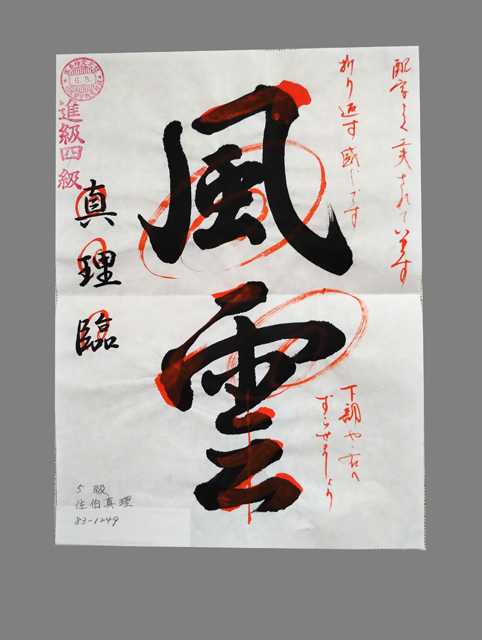 配字よく工夫されています
折り返す感じです
風雲
下部やゝ右へ
ずらせましょう
6.5.
進級四級
真理臨
5級
佐伯真理
83-1249